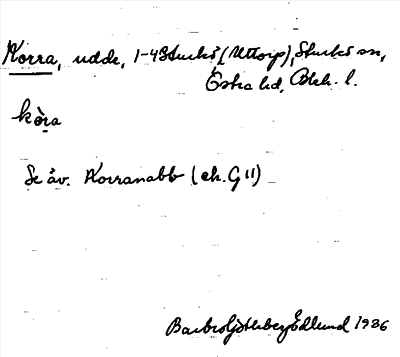 Korra, udde, 1-4 Sturkö (Uttorp), Sturkö sn,
Östra hd, Blek. l.
kòra
Se äv. Korranabb (ek. G 11)
Barbro Söderberg Edlund 1936